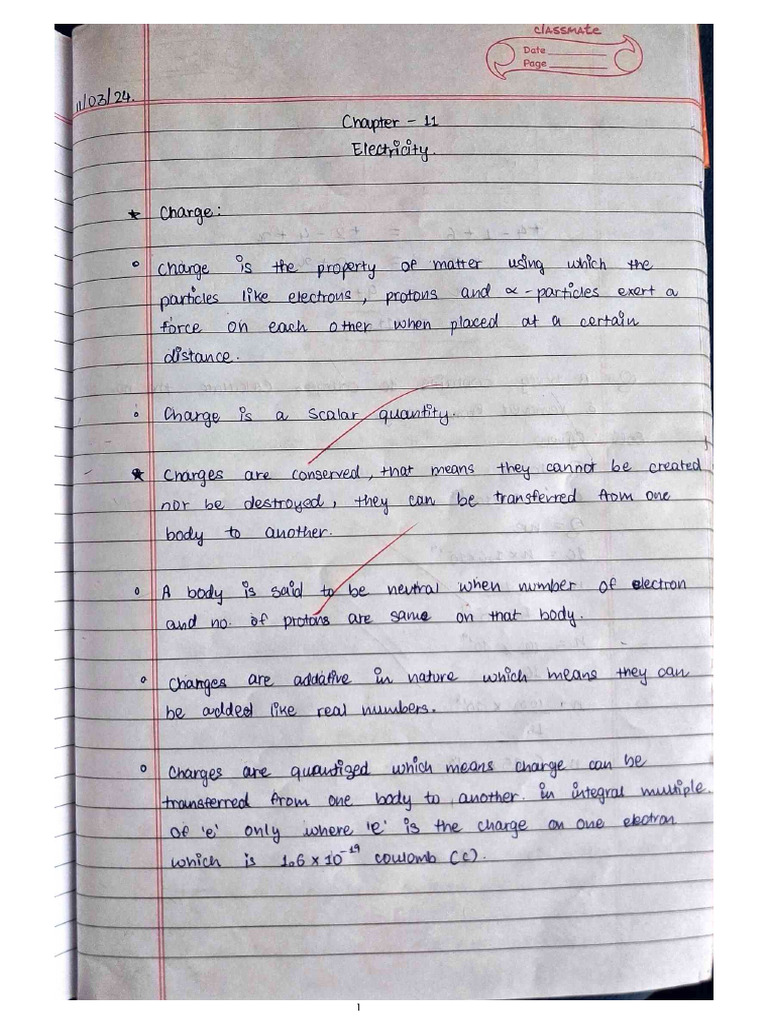 classmate
Date
Page
11/03/24.
Chapter - 11
Electricity.
* Charge:
Charge is the property of matter using which the
particles like electrons, protons and α-particles exert a
force on each other when placed at a certain
distance.
Charge is a scalar quantity.
* Charges are conserved, that means they cannot be created
nor be destroyed, they can be transferred from one
body to another.
A body is said to be neutral when number of electron
and no. of protons are same on that body.
Charges are additive in nature which means they can
be added like real numbers.
Charges are quantized which means charge can be
transferred from one body to another in integral multiple
of 'e' only where 'e' is the charge on one electron
which is 1.6 × 10⁻¹⁹ coulomb (c).
1